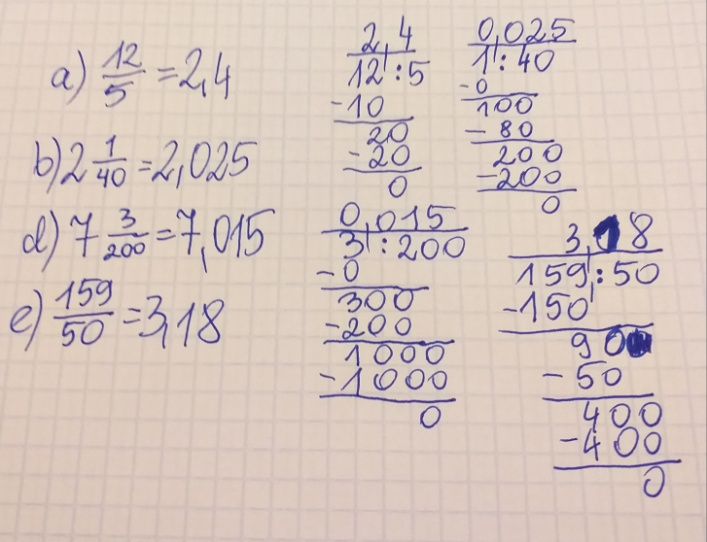 a) 12/5 = 2,4
b) 2 1/40 = 2,025
d) 7 3/200 = 7,015
e) 159/50 = 3,18
2,4
12 : 5
-10
20
-20
0
0,025
1 : 40
-0
100
- 80
200
-200
0
0,015
3 : 200
-0
300
-200
1000
-1000
0
3,18
159 : 50
-150
90
- 50
400
-400
0